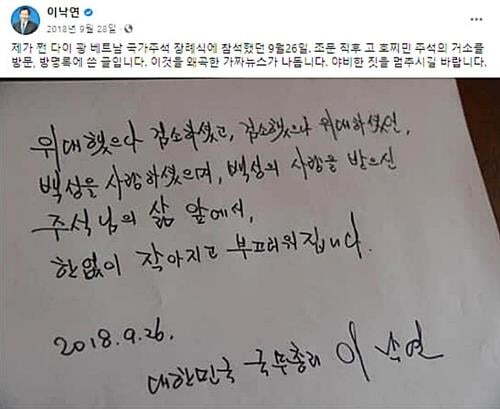 이낙연
2018년 9월 28일
제가 쩐 다이 꽝 베트남 국가주석 장례식에 참석했던 9월26일, 조문 직후 고 호찌민 주석의 거소를
방문, 방명록에 쓴 글입니다. 이것을 왜곡한 가짜뉴스가 나돕니다. 야비한 짓을 멈추시길 바랍니다.
위대했으나 검소하셨고, 검소했으나 위대하셨던,
백성을 사랑하셨으며, 백성의 사랑을 받으신
주석님의 삶 앞에서,
한없이 작아지고 부끄러워집니다.
2018. 9. 26.
대한민국 국무총리 이낙연